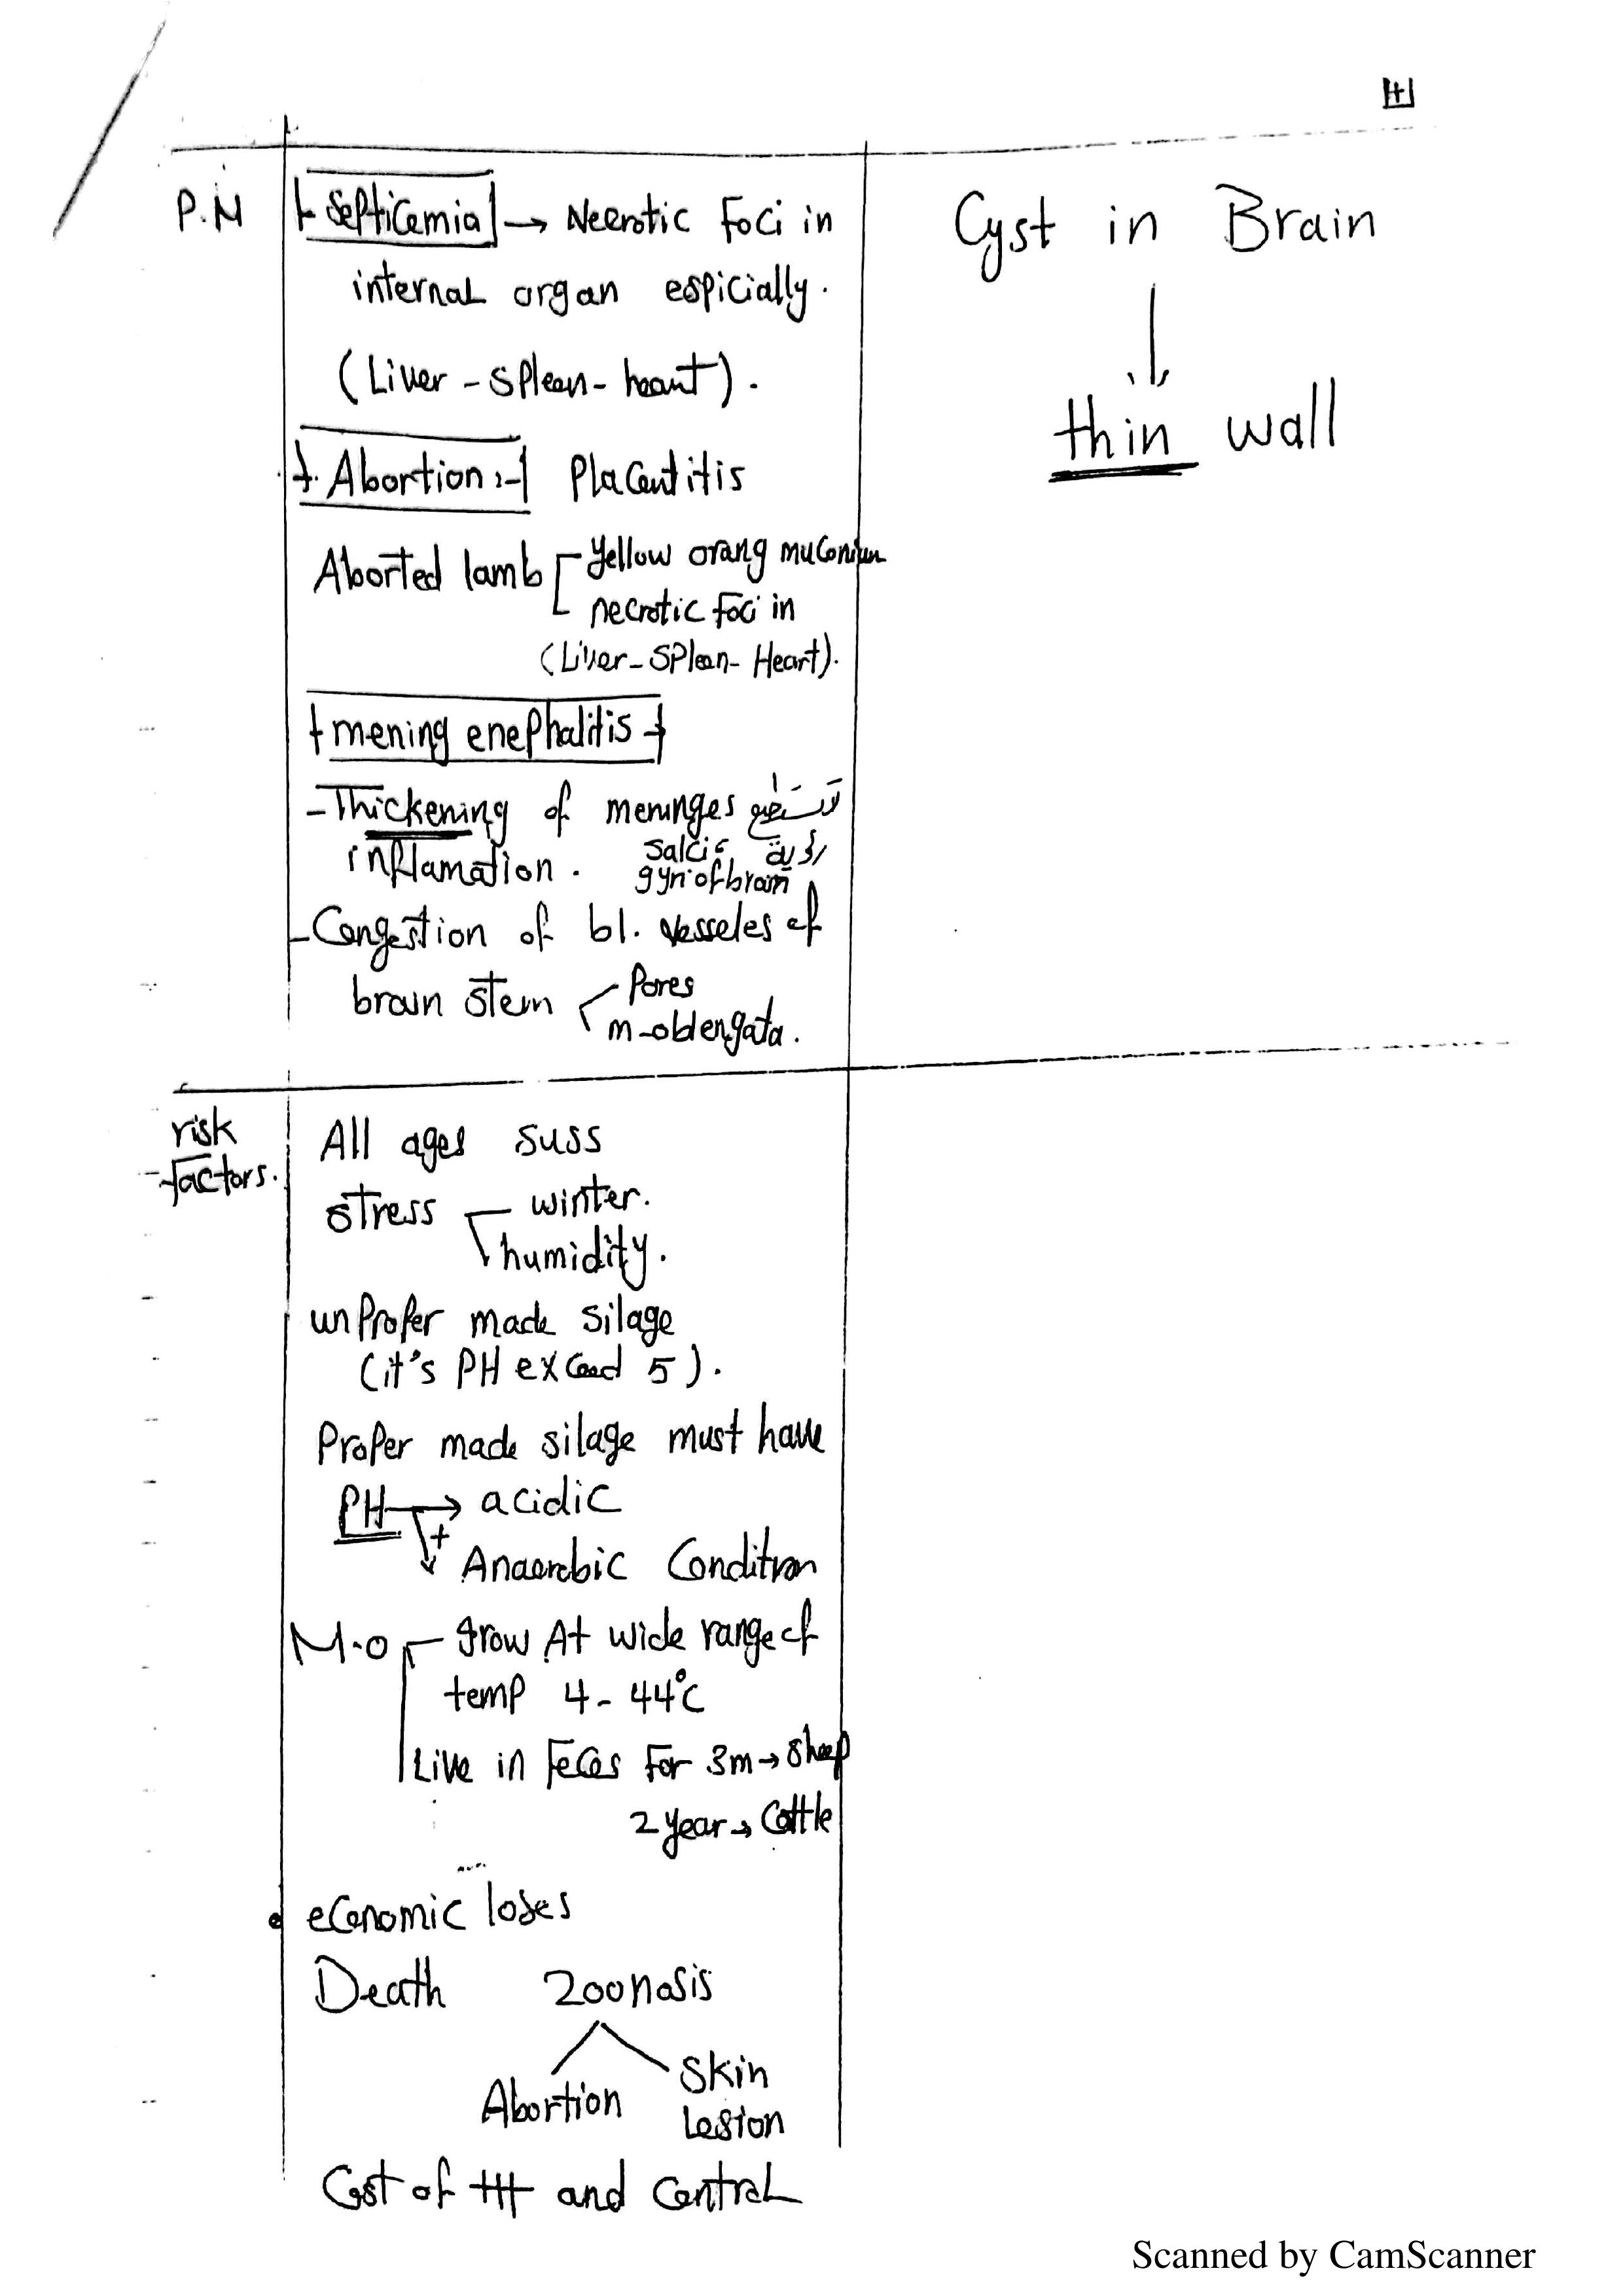 P.M
Septicemia → Necrotic Foci in
internal organ espicially.
(Liver - spleen - heart).
Abortion :- Placentitis
Aborted lamb yellow orang muconium
necrotic foci in
(Liver - Spleen - Heart).
mening enephalitis
- Thickening of meninges لا تستطيع
inflamation. salci & رؤية
gyri of brain
- Congestion of bl. vesseles of
brain stem Pores
m-oblengata.
Cyst in Brain
↓
thin wall
risk
factors.
All ages suss
stress winter.
humidity.
unProper made silage
(it's PH exceed 5).
Proper made silage must have
PH → acidic
+
Anaerobic Condition
M.o grow At wide range of
temp 4 - 44°C
Live in Feces For 3m → sheep
2 year → Cattle
• economic loses
Death Zoonosis
Abortion Skin
Lesion
Cost of ttt and Control
Scanned by CamScanner